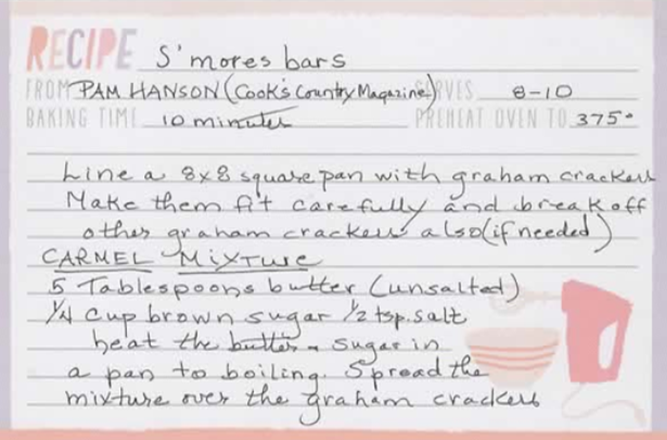 RECIPE S'mores bars
FROM PAM HANSON (Cook's Country Magazine) SERVES 8-10
BAKING TIME 10 minutes PREHEAT OVEN TO 375°
Line a 8x8 square pan with graham crackers
Make them fit carefully and break off
other graham crackers also (if needed)
CARMEL MIXTURE
5 Tablespoons butter (unsalted)
1/4 cup brown sugar 1/2 tsp. salt
heat the butter - sugar in
a pan to boiling. Spread the
mixture over the graham crackers